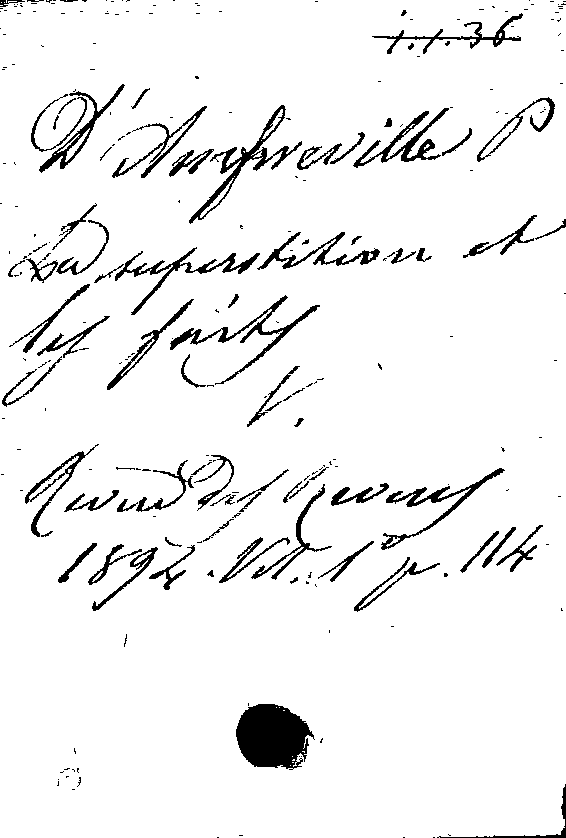 1.1.36
D'Amfreville P
La superstition et
les faits
V.
Revue des Revues
1894. Vol. 1º p. 114